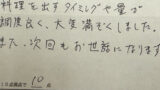 料理を出すタイミングや量が
調度良く、大変満足しました。
また、次回もお世話になります
10点満点で 10 点